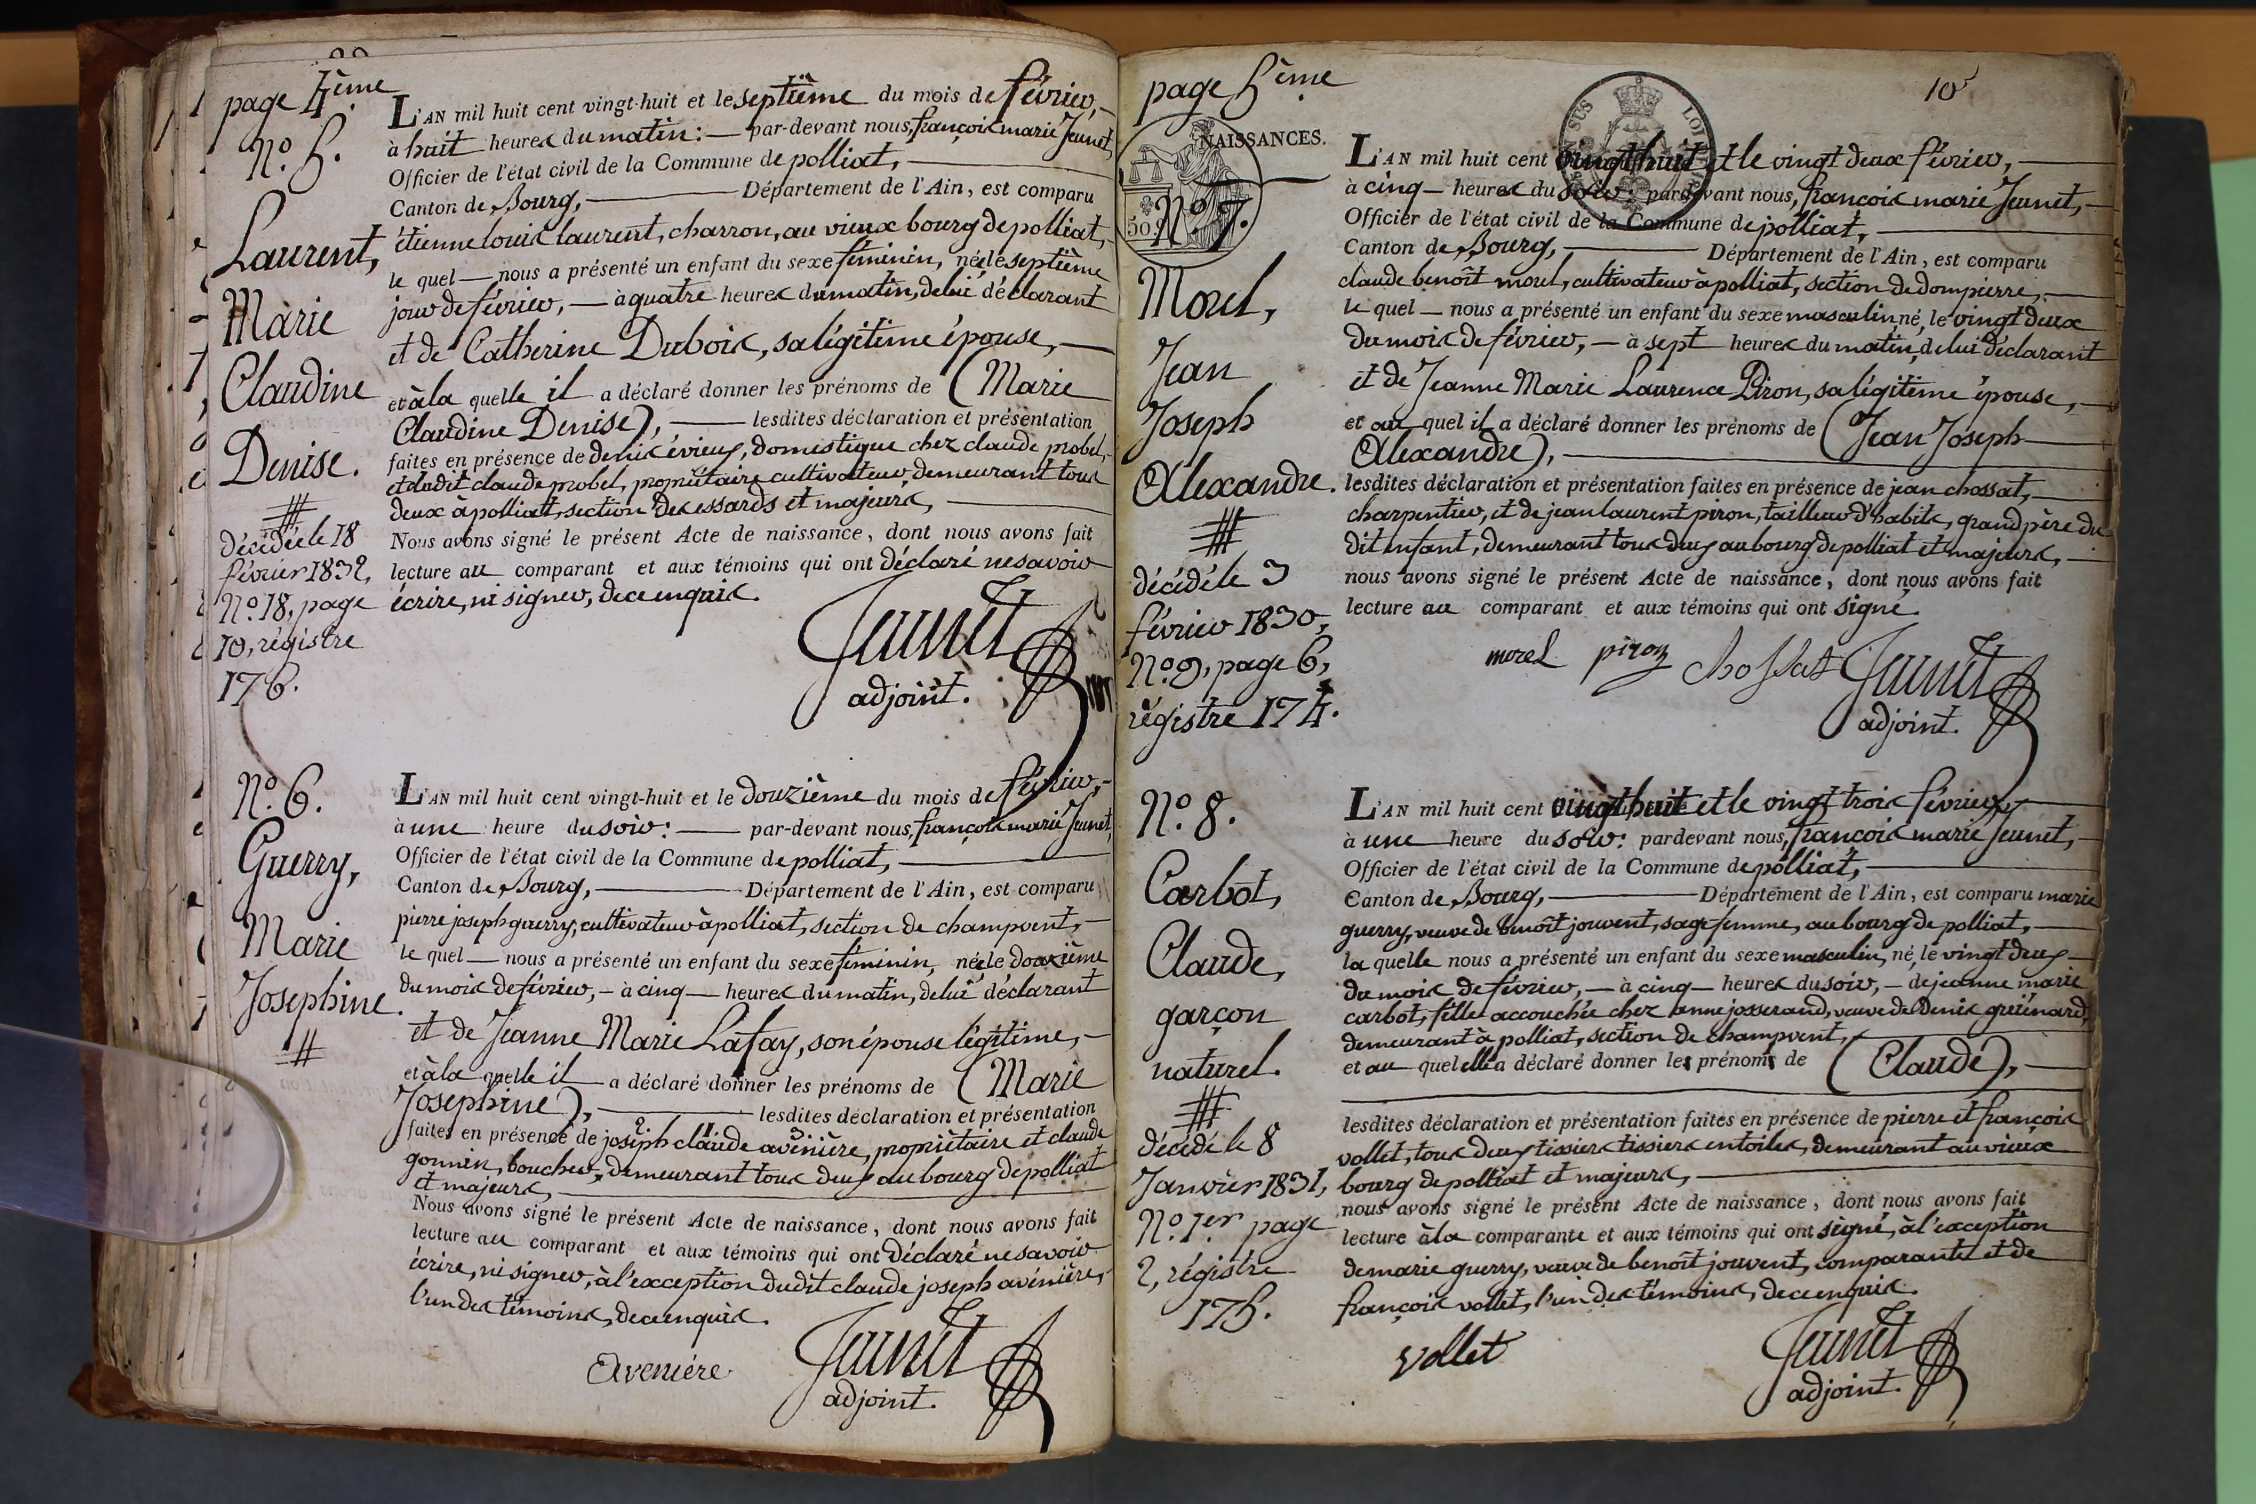 page 4ème
N.o 5.
Laurent,
Marie
Claudine
Denise.
décédée le 18
février 1832,
N.o 18, page
10, régistre
176.
L'AN mil huit cent vingt-huit et le septième du mois de février,
à huit heures du matin: par-devant nous, françois marie Jeunet,
Officier de l'état civil de la Commune de polliat,
Canton de Bourg, Département de l'Ain, est comparu
étienne louis laurent, charron, au vieux bourg de polliat,
le quel nous a présenté un enfant du sexe féminin, née le septième
jour de février, à quatre heures du matin, de lui déclarant
et de Catherine Dubois, sa légitime épouse,
et à la quelle il a déclaré donner les prénoms de (Marie
Claudine Denise), lesdites déclaration et présentation
faites en présence de denis évieux, domestique chez claude probel,
et dudit claude probel, propriétaire cultivateur, demeurant tous
deux à polliat, section des essards et majeurs,
Nous avons signé le présent Acte de naissance, dont nous avons fait
lecture au comparant et aux témoins qui ont déclaré ne savoir
écrire, ni signer, de ce enquis.
Jeunet
adjoint.
N.o 6.
Guerry,
Marie
Josephine.
L'AN mil huit cent vingt-huit et le douzième du mois de février,
à une heure du soir: par-devant nous, françois marie Jeunet,
Officier de l'état civil de la Commune de polliat,
Canton de Bourg, Département de l'Ain, est comparu
pierre joseph guerry, cultivateur à polliat, section de champvent,
le quel nous a présenté un enfant du sexe féminin, née le douzième
du mois de février, à cinq heures du matin, de lui déclarant
et de Jeanne Marie Lafay, son épouse légitime,
et à la quelle il a déclaré donner les prénoms de (Marie
Josephine), lesdites déclaration et présentation
faites en présence de joseph claude avenière, propriétaire et claude
gonnin, boucher, demeurant tous deux au bourg de polliat
et majeurs,
Nous avons signé le présent Acte de naissance, dont nous avons fait
lecture au comparant et aux témoins qui ont déclaré ne savoir
écrire, ni signer, à l'exception dudit claude joseph avenière,
l'un des témoins, de ce enquis.
Avenière
Jeunet
adjoint.
page 5ème
10
NAISSANCES.
N.o 7.
Morel,
Jean
Joseph
Alexandre.
décédé le 3
février 1830,
N.o 9, page 6,
régistre 174.
L'AN mil huit cent vingt huit et le vingt deux février,
à cinq heures du soir: pardevant nous, françois marie Jeunet,
Officier de l'état civil de la Commune de polliat,
Canton de Bourg, Département de l'Ain, est comparu
claude benoît morel, cultivateur à polliat, section de dompierre,
le quel nous a présenté un enfant du sexe masculin, né, le vingt deux
du mois de février, à sept heures du matin, de lui déclarant
et de Jeanne Marie Laurence Piron, sa légitime épouse,
et au quel il a déclaré donner les prénoms de (Jean Joseph
Alexandre),
lesdites déclaration et présentation faites en présence de jean chossat,
charpentier, et de jean laurent piron, tailleur d'habits, grand père du
dit enfant, demeurant tous deux au bourg de polliat et majeurs,
nous avons signé le présent Acte de naissance, dont nous avons fait
lecture au comparant et aux témoins qui ont signé.
morel piron chossat Jeunet
adjoint.
N.o 8.
Carbot,
Claude,
garçon
naturel.
décédé le 8
Janvier 1831,
N.o 1.er page
2, régistre
175.
L'AN mil huit cent vingt huit et le vingt trois février,
à une heure du soir: pardevant nous, françois marie Jeunet,
Officier de l'état civil de la Commune de polliat,
Canton de Bourg, Département de l'Ain, est comparu marie
guerry, veuve de benoît jouvent, sage femme, au bourg de polliat,
la quelle nous a présenté un enfant du sexe masculin, né, le vingt deux
du mois de février, à cinq heures du soir, de jeanne marie
carbot, fille accouchée chez anne josserand, veuve de Denis grétenard,
demeurant à polliat, section de champvent,
et au quel elle a déclaré donner les prénoms de (Claude),
lesdites déclaration et présentation faites en présence de pierre et françois
vollet, tous deux tissiers tissiers en toiles, demeurant au vieux
bourg de polliat et majeurs,
nous avons signé le présent Acte de naissance, dont nous avons fait
lecture à la comparante et aux témoins qui ont signé, à l'exception
de marie guerry, veuve de benoît jouvent, comparante et de
françois vollet, l'un des témoins, de ce enquis.
vollet
Jeunet
adjoint.